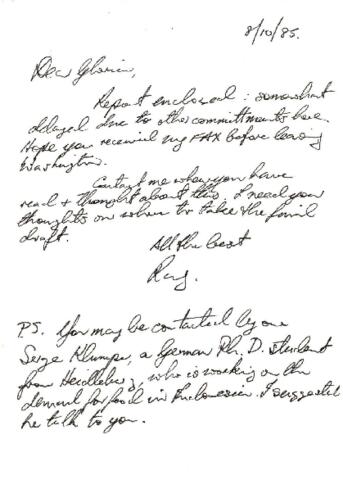 8/10/85.
Dear Gloria,
Report enclosed : somewhat
delayed due to other committments here.
Hope you received my FAX before leaving
Washington.
Contact me when you have
read + thought about this. I need your
thoughts on when to take the final
draft.
All the best
Ray.
P.S. You may be contacted by one
Serge, a German Ph. D. student
from Heidleberg, who is working on the
demand for food in Indonesia. I suggested
he talk to you.